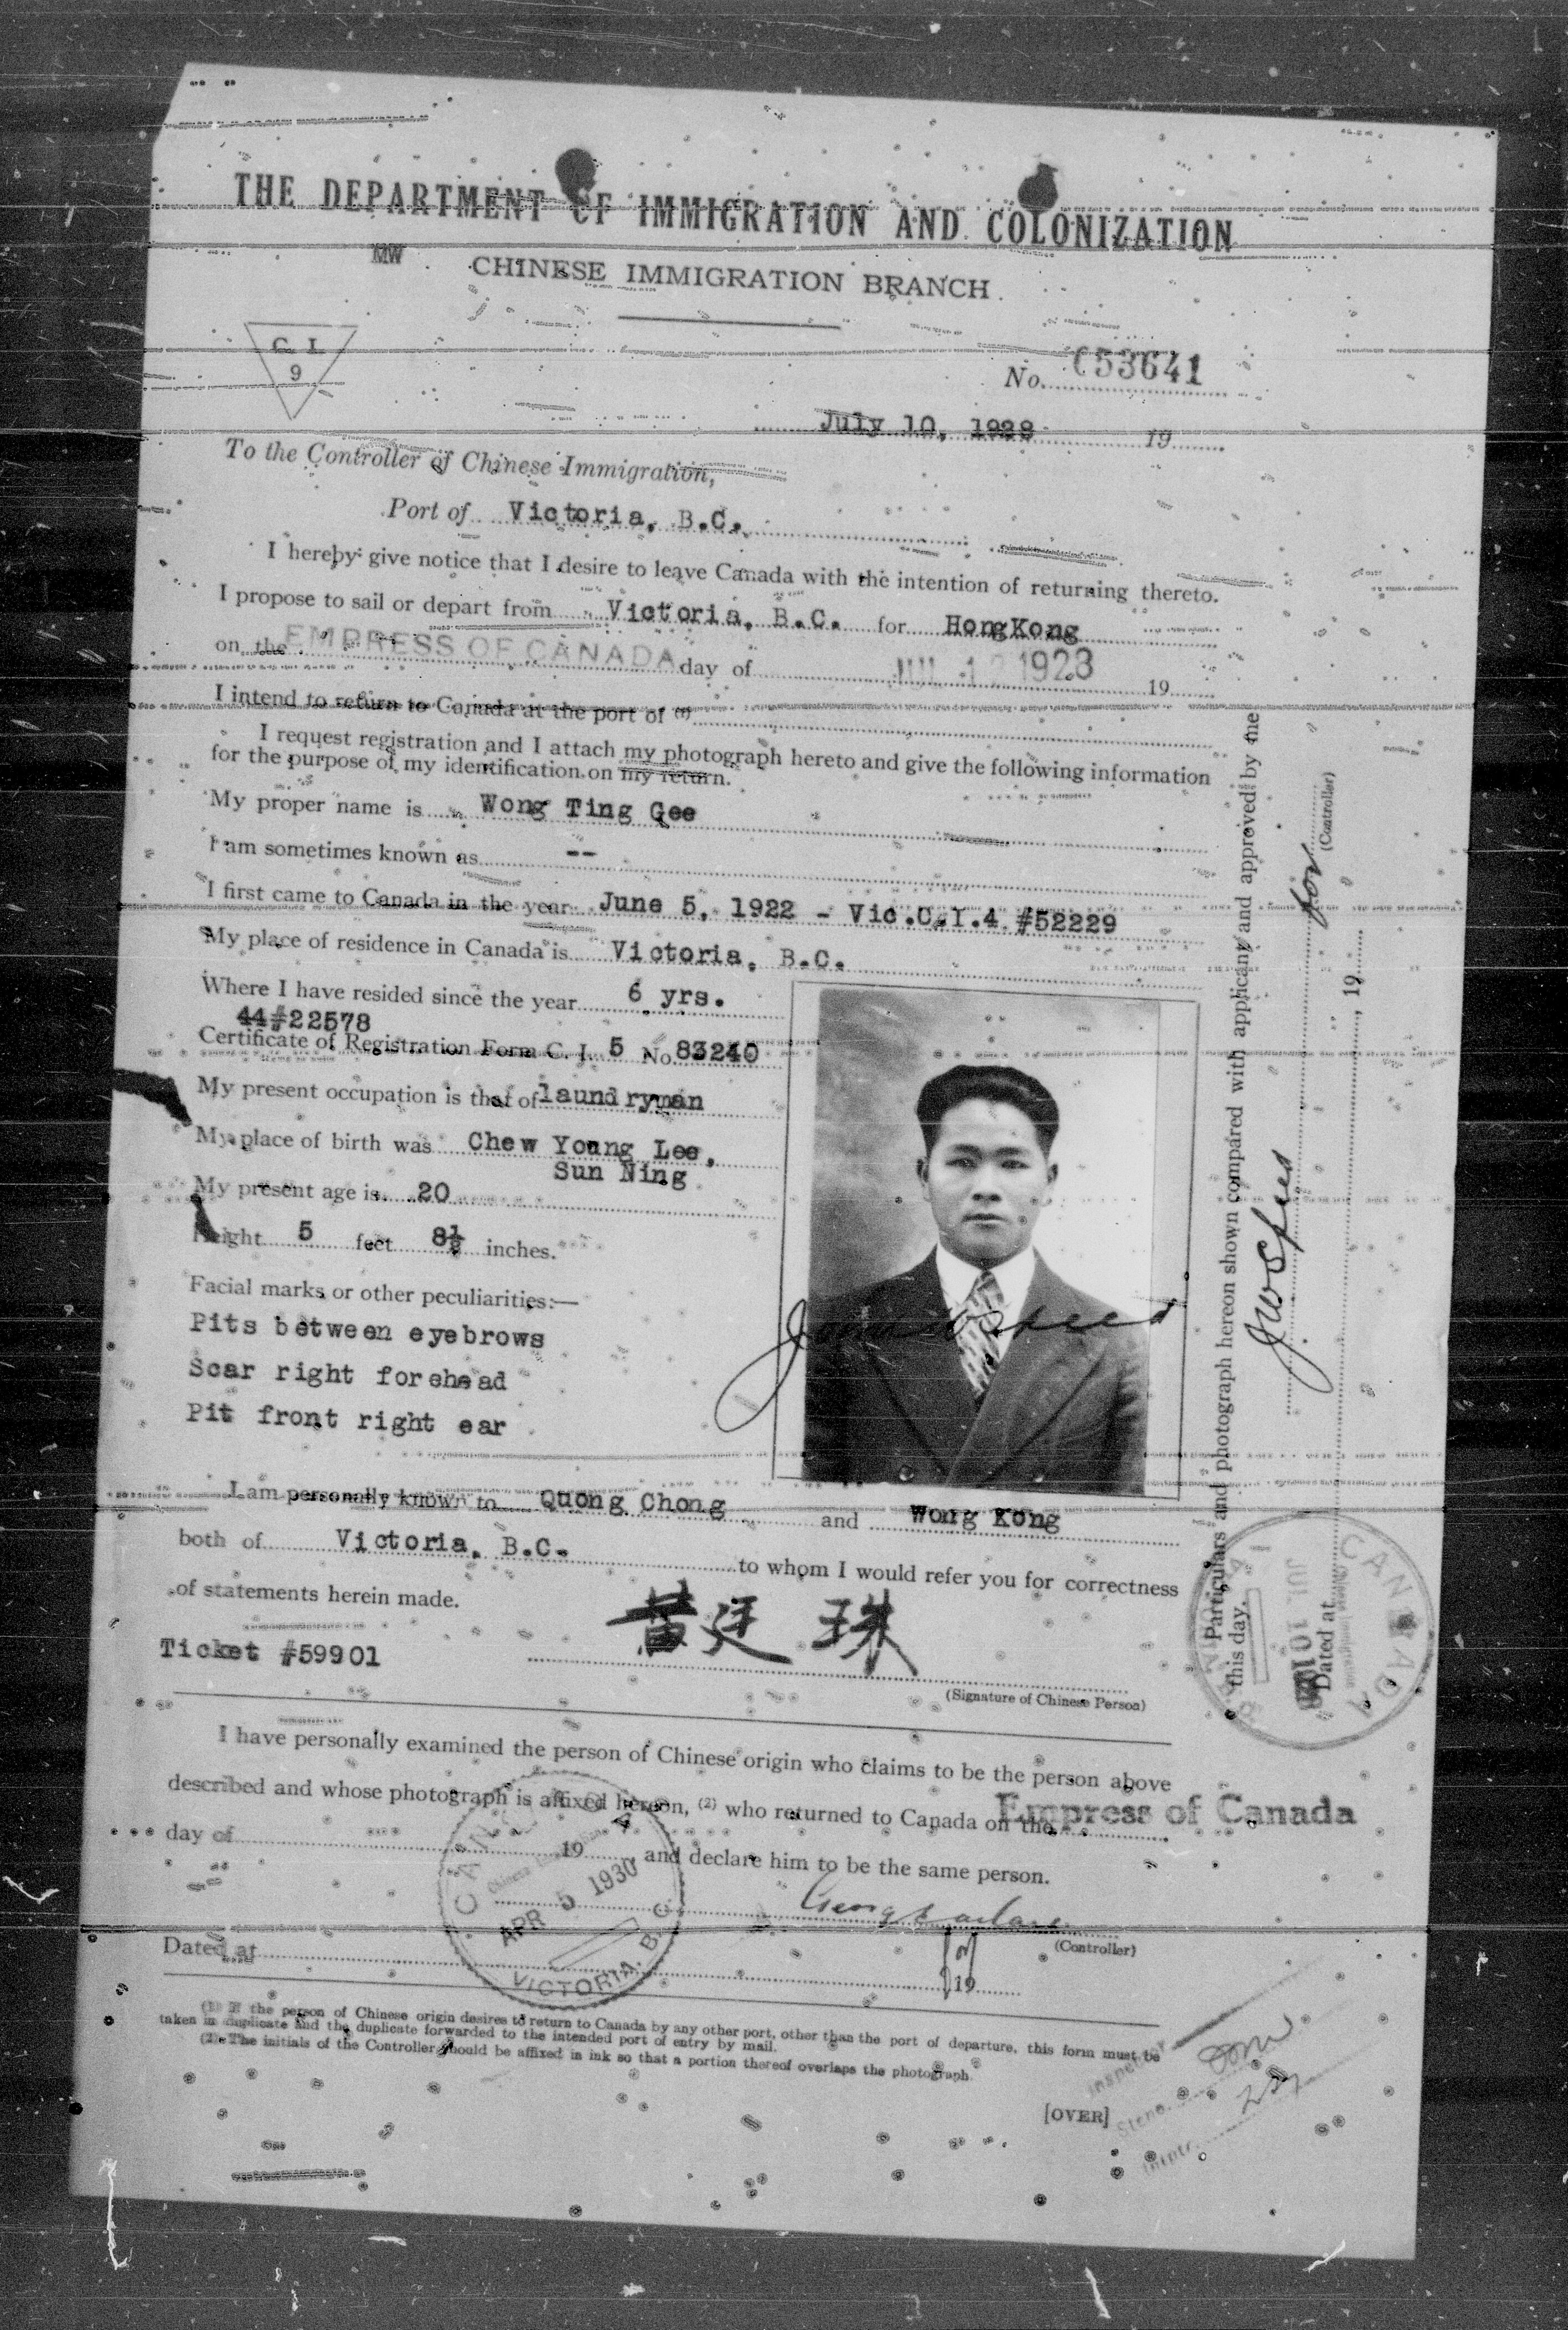 THE DEPARTMENT OF IMMIGRATION AND COLONIZATION
MW
CHINESE IMMIGRATION BRANCH
C. I.
9
No. 053641
July 10, 1928 19
To the Controller of Chinese Immigration,
Port of Victoria, B.C.
I hereby give notice that I desire to leave Canada with the intention of returning thereto.
I propose to sail or depart from Victoria, B.C. for HongKong
on the EMPRESS OF CANADA day of JUL 12 1928 19
I intend to return to Canada at the port of (1)
I request registration and I attach my photograph hereto and give the following information
for the purpose of my identification on my return.
My proper name is Wong Ting Gee
I am sometimes known as --
I first came to Canada in the year June 5, 1922 - Vic.C.I.4 #52229
My place of residence in Canada is Victoria, B.C.
Where I have resided since the year 6 yrs.
44#22578
Certificate of Registration Form C. I. 5 No. 83240
My present occupation is that of laundryman
My place of birth was Chew Young Lee,
Sun Ning
My present age is 20
Height 5 feet 8½ inches.
Facial marks or other peculiarities:—
Pits between eyebrows
Scar right forehead
Pit front right ear
I am personally known to Quong Chong and Wong Kong
both of Victoria, B.C. to whom I would refer you for correctness
of statements herein made.
黄廷珠
Ticket #59901
(Signature of Chinese Person)
I have personally examined the person of Chinese origin who claims to be the person above
described and whose photograph is affixed hereon, (2) who returned to Canada on the Empress of Canada
day of 19 and declare him to be the same person.
CANADA
APR 5 1930
VICTORIA, B.C.
(Controller)
Dated at 19
(1) If the person of Chinese origin desires to return to Canada by any other port, other than the port of departure, this form must be
taken in duplicate and the duplicate forwarded to the intended port of entry by mail.
(2) The initials of the Controller should be affixed in ink so that a portion thereof overlaps the photograph.
[OVER]
Inspector
Steno.
Particulars and photograph hereon shown compared with applicant and approved by me
this day.
J W Speed for
(Controller)
Dated at 19
CANADA
JUL 10 1928